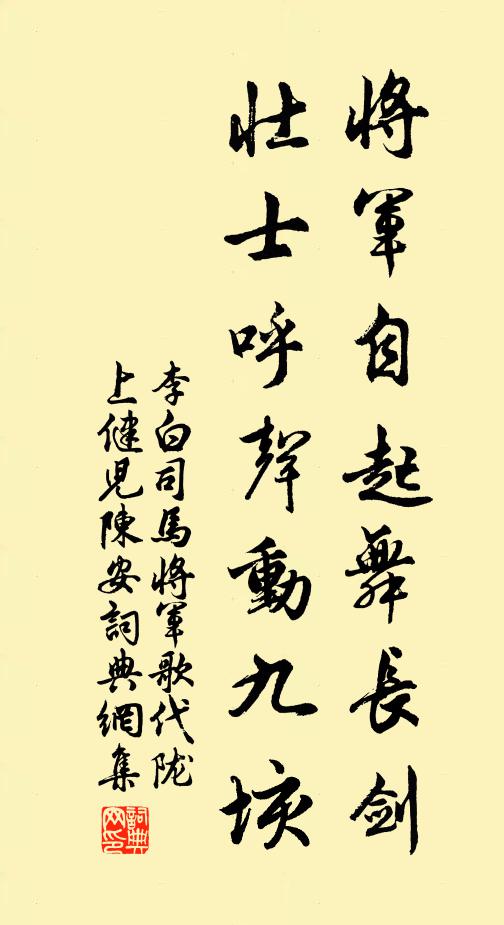 將軍自起舞長劍
壯士呼聲動九垓
李白司馬將軍歌代陇
上健児陳安詞典網集
詞典
网印